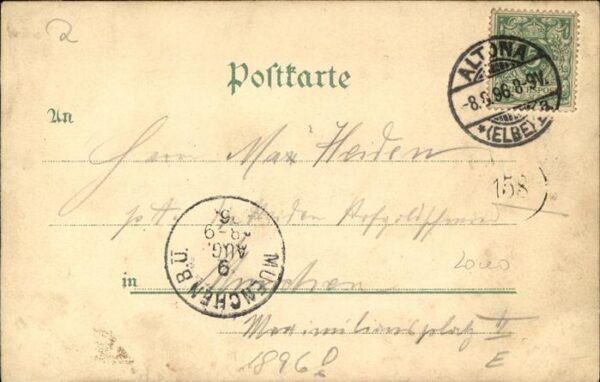 Postkarte
ALTONA
-8.8.96.8-9V.
*(ELBE)
An
Herrn Max Heiden
158
Hofgoldschmied
MUENCHEN B.II
9
AUG.
8-9
in München
Maximiliansplatz
1896
E